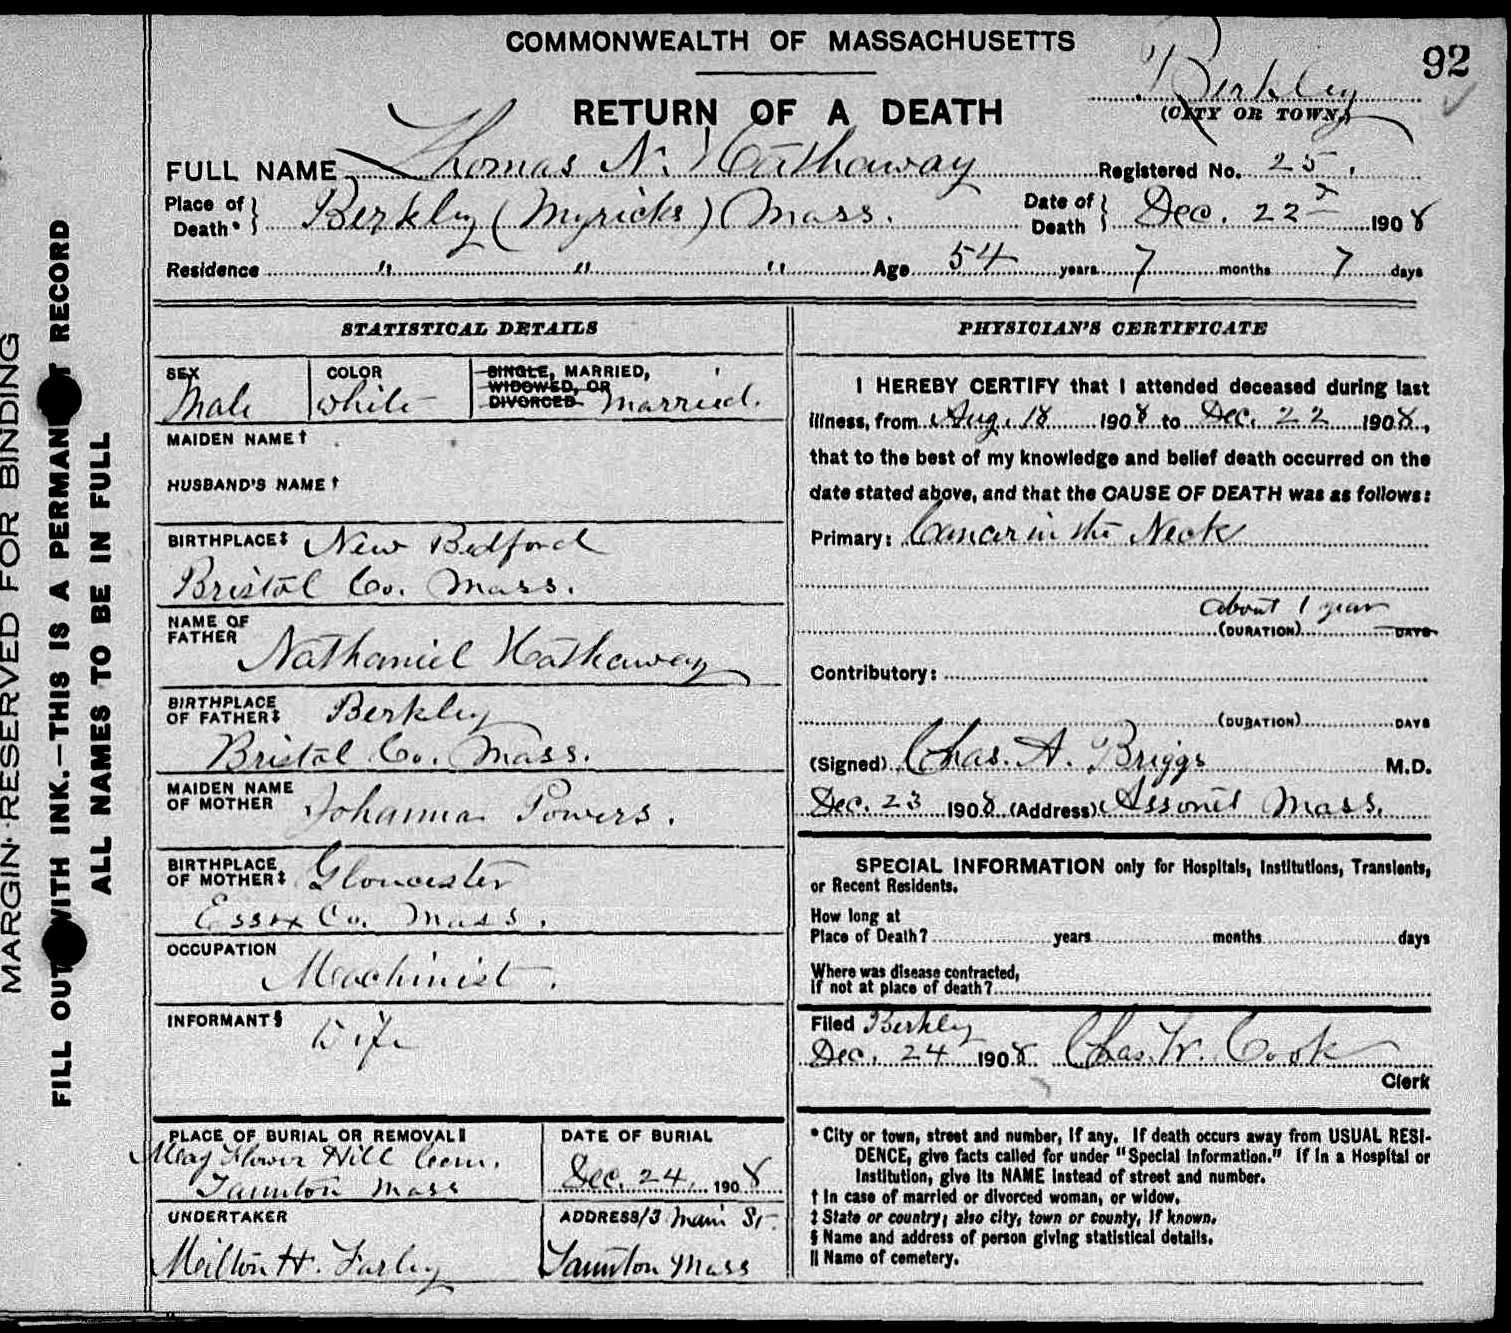 COMMONWEALTH OF MASSACHUSETTS
92
Berkley
(CITY OR TOWN)
RETURN OF A DEATH
FULL NAME Thomas N. Hathaway Registered No. 25.
Place of Death* } Berkley (Myricks) Mass. Date of Death } Dec. 22 1908
Residence " " " Age 54 years 7 months 7 days
MARGIN RESERVED FOR BINDING
FILL OUT WITH INK.—THIS IS A PERMANENT RECORD
ALL NAMES TO BE IN FULL
STATISTICAL DETAILS
SEX Male
COLOR White
SINGLE, MARRIED,
WIDOWED, OR
DIVORCED Married.
MAIDEN NAME †
HUSBAND'S NAME †
BIRTHPLACE ‡ New Bedford
Bristol Co. Mass.
NAME OF FATHER Nathaniel Hathaway
BIRTHPLACE OF FATHER ‡ Berkley
Bristol Co. Mass.
MAIDEN NAME OF MOTHER Johanna Powers.
BIRTHPLACE OF MOTHER ‡ Gloucester
Essex Co. Mass.
OCCUPATION
Machinist.
INFORMANT § Wife
PLACE OF BURIAL OR REMOVAL ||
May Flower Hill Cem.
Taunton Mass
DATE OF BURIAL
Dec. 24, 1908
UNDERTAKER
Milton H. Farley
ADDRESS 13 Main St.
Taunton Mass
PHYSICIAN'S CERTIFICATE
I HEREBY CERTIFY that I attended deceased during last
illness, from Aug. 18 1908 to Dec. 22 1908,
that to the best of my knowledge and belief death occurred on the
date stated above, and that the CAUSE OF DEATH was as follows:
Primary: Cancer in the Neck
about 1 year
(DURATION) DAYS
Contributory:
(DURATION) DAYS
(Signed) Chas. A. Briggs M.D.
Dec. 23 1908 (Address) Assonet Mass.
SPECIAL INFORMATION only for Hospitals, Institutions, Transients,
or Recent Residents.
How long at
Place of Death? years months days
Where was disease contracted,
if not at place of death?
Filed Berkley
Dec. 24 1908 Chas. W. Cook
Clerk
* City or town, street and number, if any. If death occurs away from USUAL RESI-
DENCE, give facts called for under "Special Information." If in a Hospital or
Institution, give its NAME instead of street and number.
† In case of married or divorced woman, or widow.
‡ State or country; also city, town or county, if known.
§ Name and address of person giving statistical details.
|| Name of cemetery.